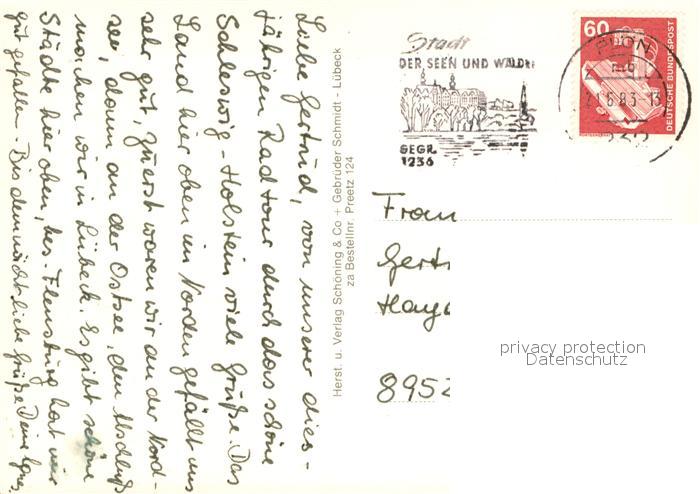 Liebe Gertrud, von unserer dies-
jährigen Radtour durch das schöne
Schleswig-Holstein viele Grüße. Das
Land hier oben im Norden gefällt uns
sehr gut, zuerst waren wir an der Nord-
see, dann an der Ostsee, den Abschluß
machen wir in Lübeck. Es gibt schöne
Städte hier oben, bes. Flensburg hat mir
gut gefallen. Bis demnächst liebe Grüße Deine Agnes
Herst. u. Verlag Schöning & Co + Gebrüder Schmidt - Lübeck
za Bestellnr. Preetz 124
Stadt
DER SEEN UND WÄLDER
GEGR.
1236
PLÖN
6.83-13
60
DEUTSCHE BUNDESPOST
Frau
Gert
Hayd
8952
privacy protection
Datenschutz